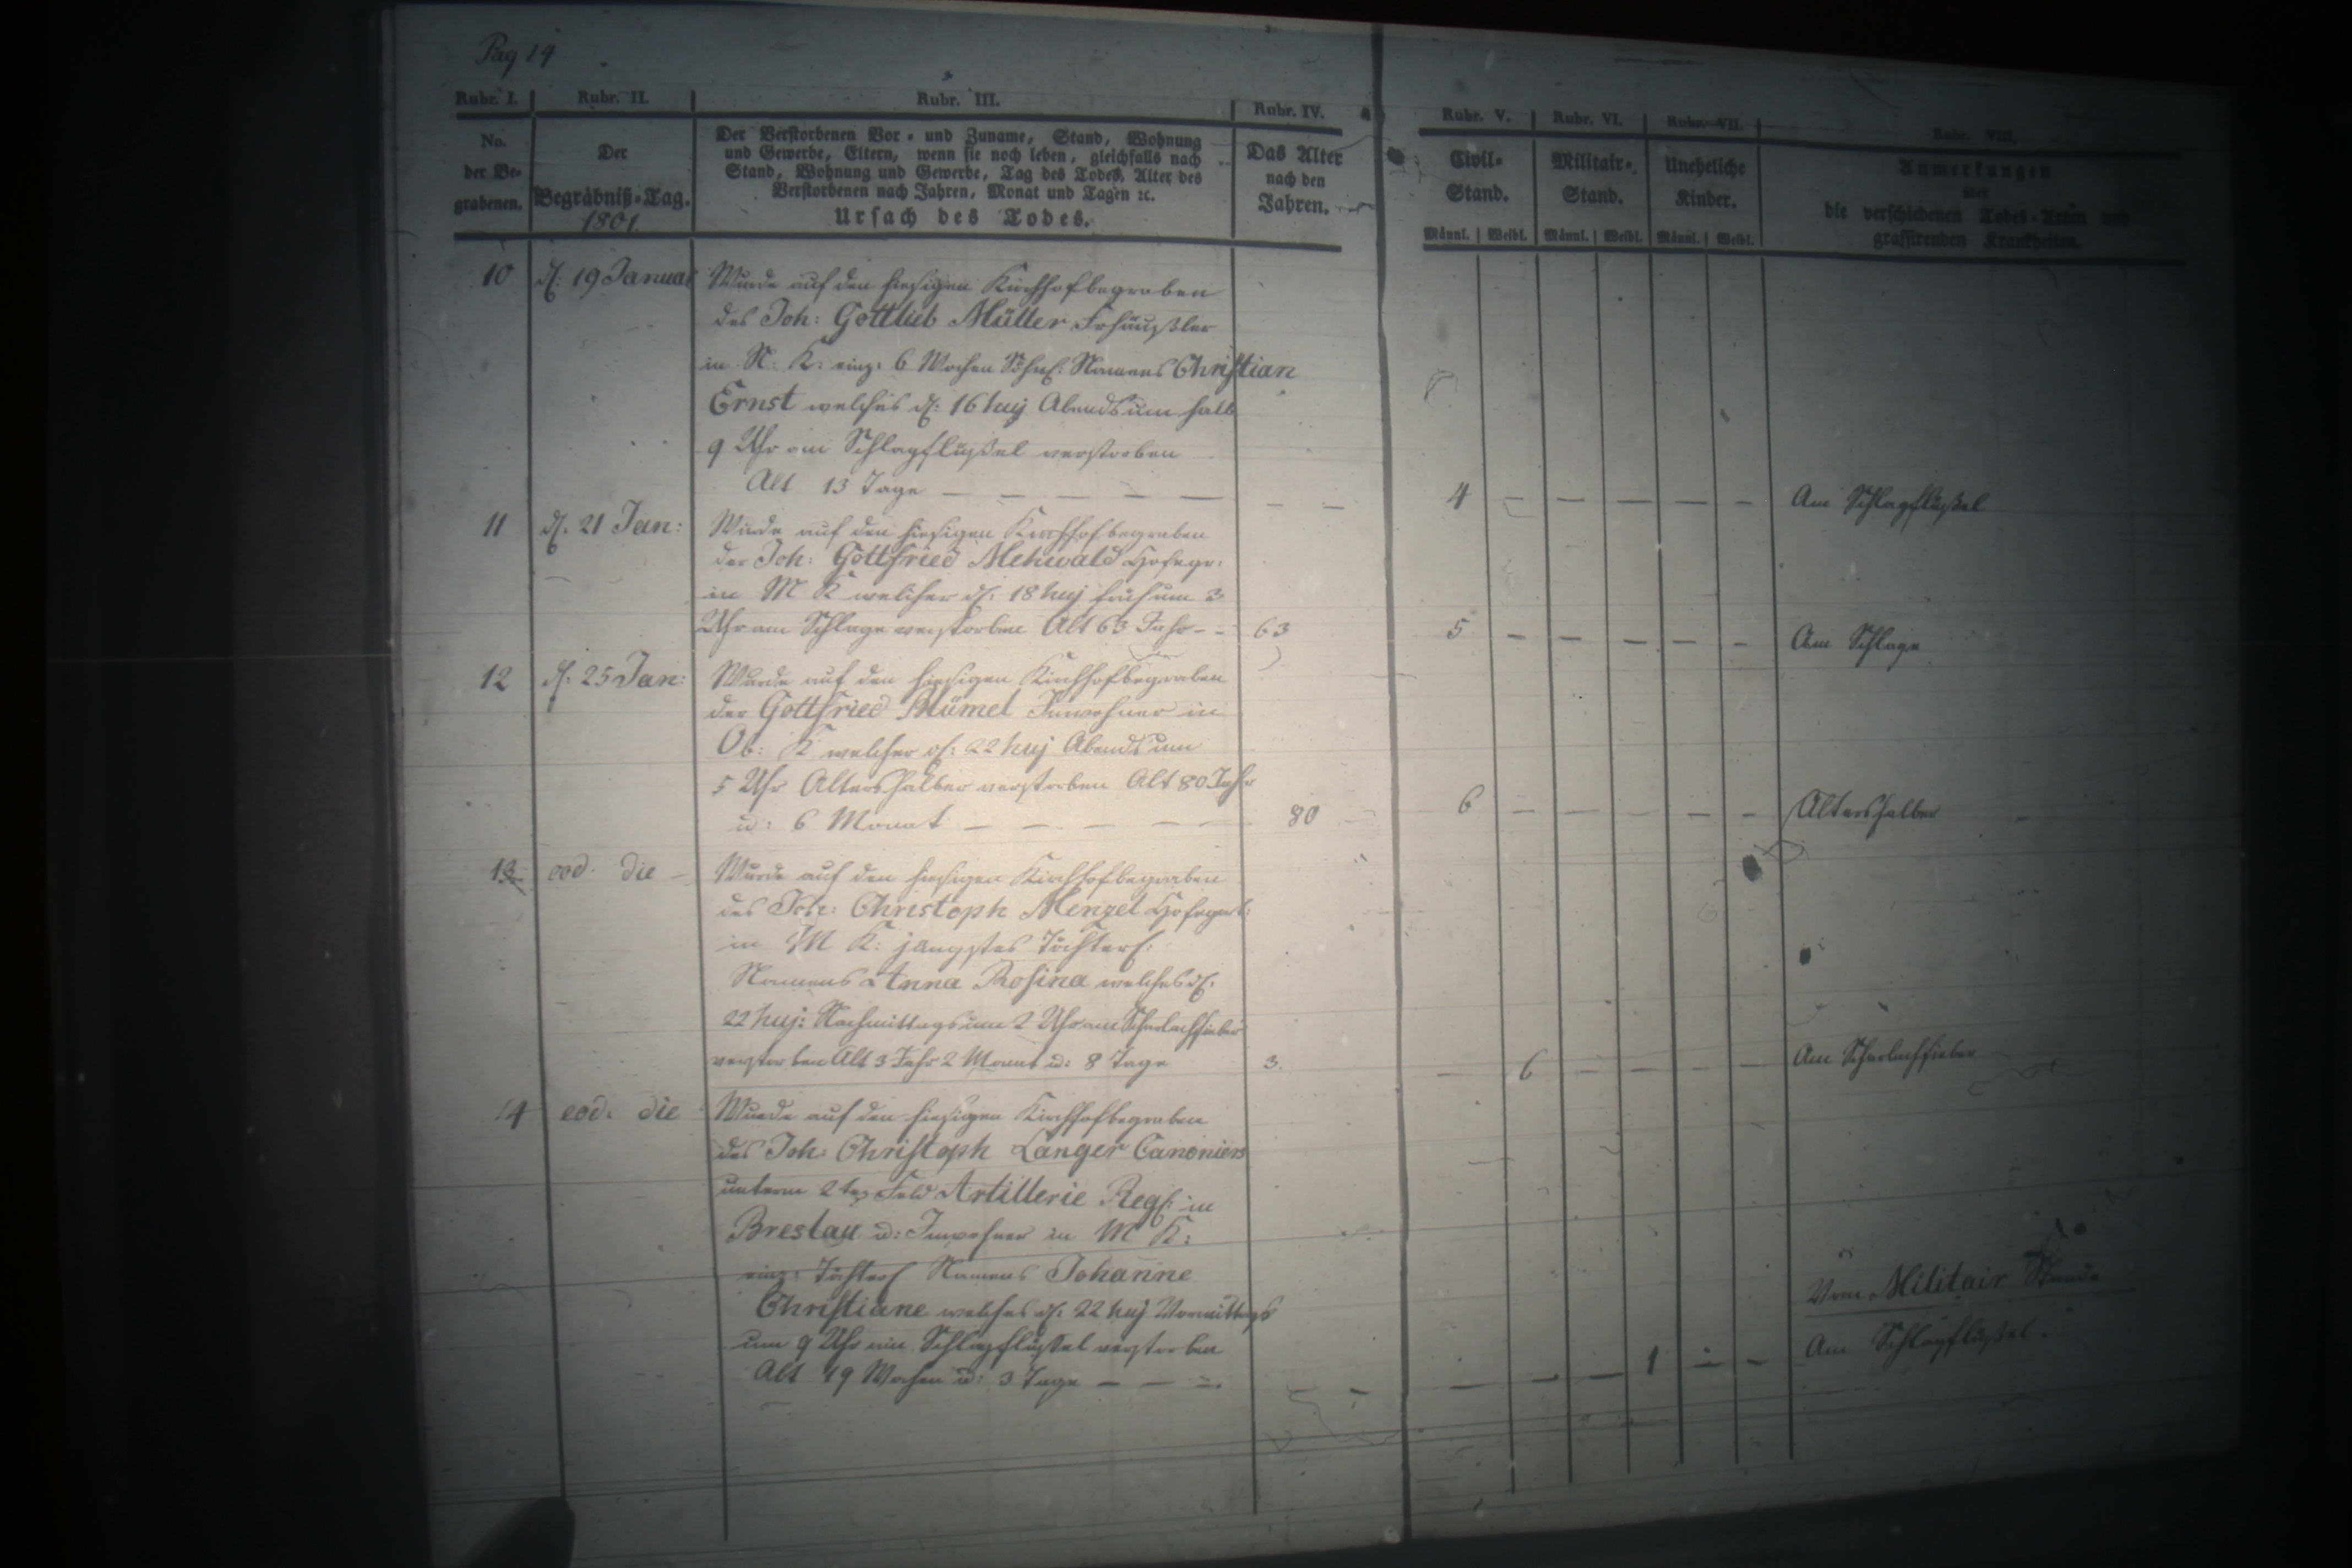 Pag 14
Rubr. I. Rubr. II. Rubr. III. Rubr. IV. Rubr. V. Rubr. VI. Rubr. VII. Rubr. VIII.
No. der Be-grabenen.
Der Begräbniß-Tag. 1801.
Der Verstorbenen Vor- und Zuname, Stand, Wohnung
und Gewerbe, Eltern, wenn sie noch leben, gleichfalls nach
Stand, Wohnung und Gewerbe, Tag des Todes, Alter des
Verstorbenen nach Jahren, Monat und Tagen ꝛc.
Ursach des Todes.
Das Alter nach den Jahren.
Civil-Stand.
Militair-Stand.
Uneheliche Kinder.
Anmerkungen
über
die verschiedenen Todes-Arten und
grassirenden Krankheiten.
Männl. Weibl. Männl. Weibl. Männl. Weibl.
10 d. 19 Januar Wurde auf den hiesigen Kirchhof begraben
des Joh: Gottlieb Müller Frhäußler
in N. K: einz: 6 Wochen Söhnl: Namens Christian
Ernst welches d: 16 huj Abends um halb
9 Uhr am Schlagflüßel verstorben
Alt 13 Tage — — — — — — — 4 — — — — — Am Schlagflüßel
11 d. 21 Jan: Wurde auf den hiesigen Kirchhof begraben
der Joh: Gottfried Mehwald Hofegr:
in M K welcher d: 18 huj früh um 3
Uhr am Schlage verstorben Alt 63 Jahr - - 63 5 — — — — — Am Schlage
12 d. 25 Jan: Wurde auf den hiesigen Kirchhof begraben
der Gottfried Blümel Inwohner in
Ob: K welcher d: 22 huj Abends um
5 Uhr Altershalber verstorben Alt 80 Jahr
u: 6 Monat — — — — — 80 6 — — — — — Altershalber
13 eod. die — Wurde auf den hiesigen Kirchhof begraben
des Joh: Christoph Menzel Hofegart:
in M K: jüngstes Töchterl:
Namens Anna Rosina welches d:
22 huj: Nachmittags um 2 Uhr am Scharlachfieber
verstorben Alt 3 Jahr 2 Monat u: 8 Tage 3. — 6 — — — — Am Scharlachfieber
14 eod. die Wurde auf den hiesigen Kirchhof begraben
des Joh: Christoph Langer Canoniers
unterm 2ten Feld Artillerie Regt: in
Breslau u: Inwohner in M K:
einz: Töchterl Namens Johanne
Christiane welches d: 22 huj Vormittags
um 9 Uhr am Schlagflüßel verstorben Vom Militair Stande
Alt 19 Wochen u: 3 Tage — — — — — — — — 1 — — Am Schlagflüßel.